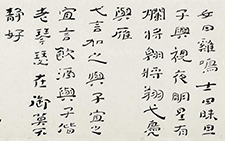 女曰雞鳴士曰昧旦
子興視夜明星有
爛將翱將翔弋鳧
與雁
弋言加之與子宜之
宜言飲酒與子偕
老琴瑟在御莫不
靜好